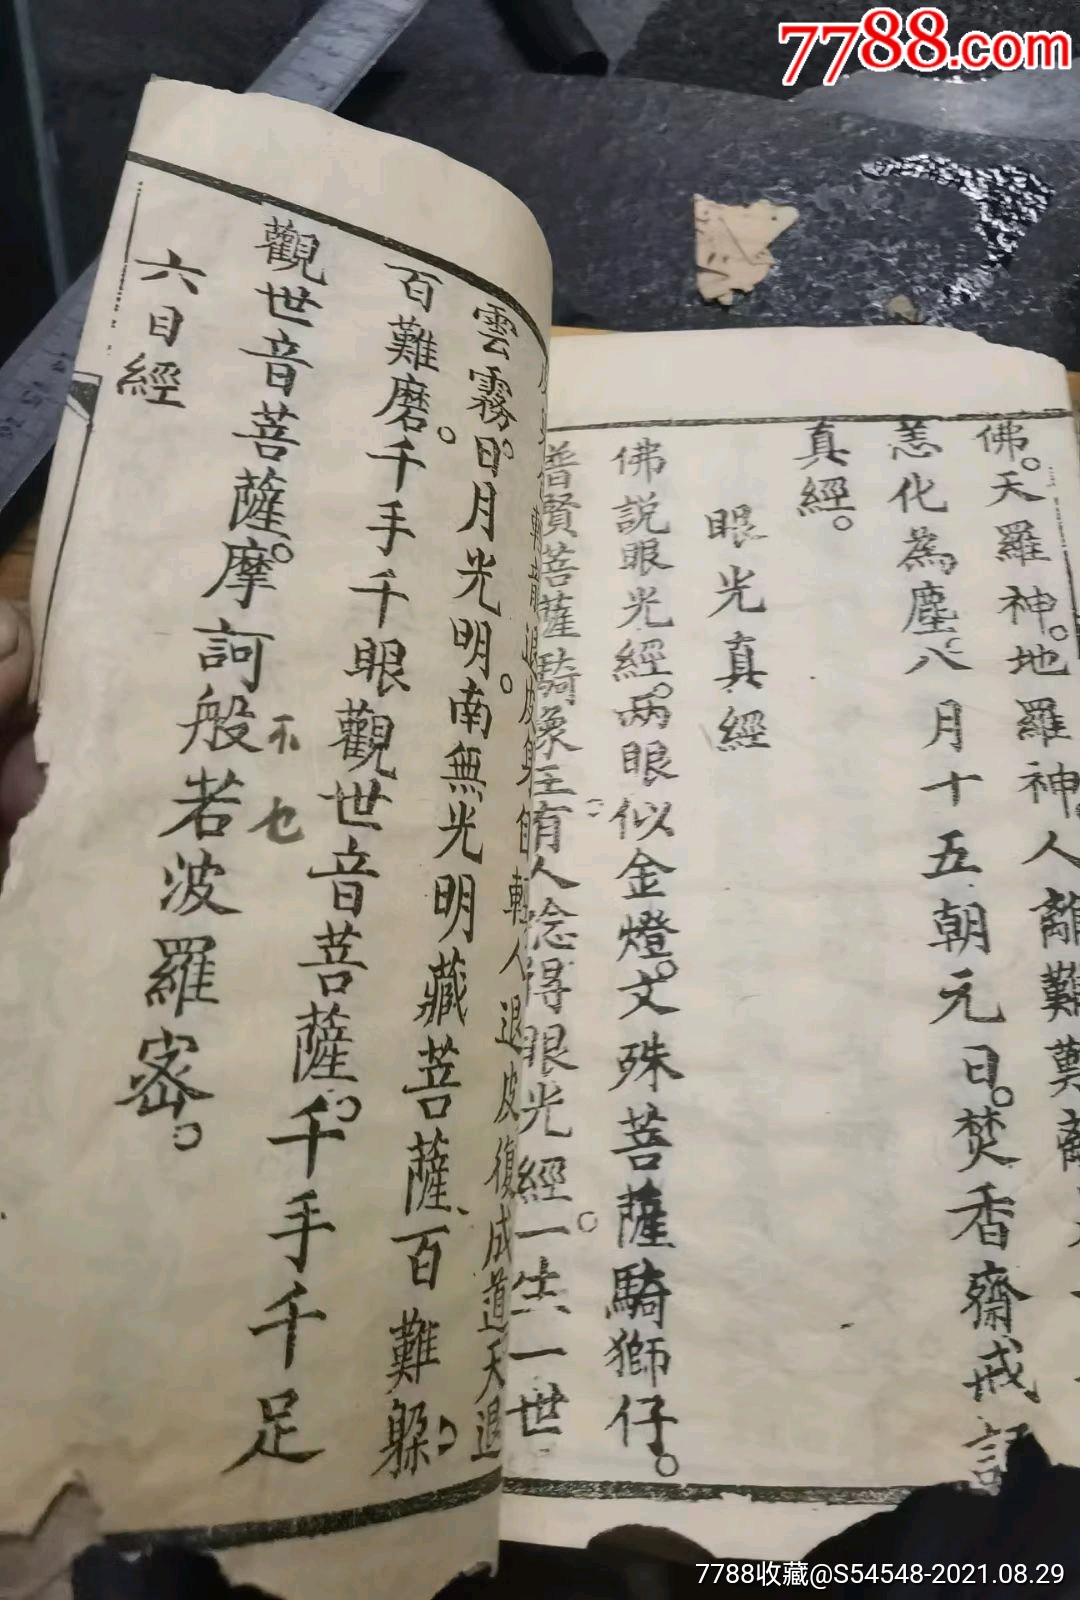 7788.com
佛。天羅神。地羅神。人離難難離
恙化為塵。八月十五朝元日。焚香齋戒
真經。
眼光真經
佛説眼光經。两眼似金燈。文殊菩薩騎獅仔。
普賢菩薩騎象王有人念得眼光經。一生一世
退皮復成道天退
雲霧。日月光明。南無光明藏菩薩百難躲。
百難磨。千手千眼觀世音菩薩。千手千足
觀世音菩薩。摩訶般若波羅密。
不也
六目經
7788收藏@S54548-2021.08.29